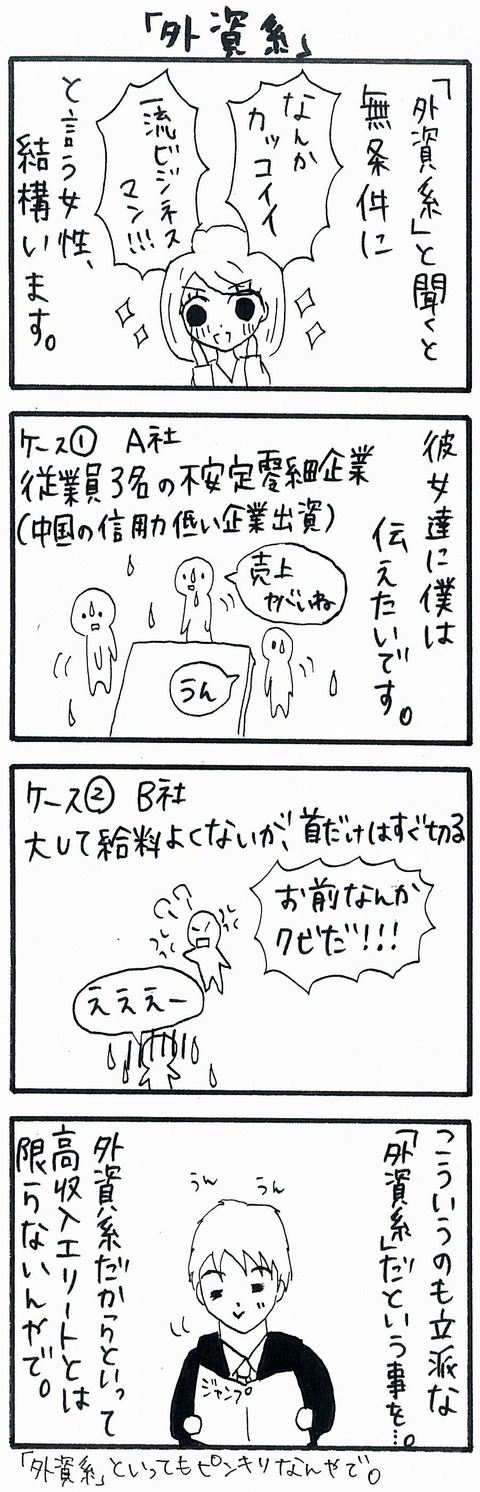 「外資系」
「外資系」と聞くと
無条件に
なんか
カッコイイ
一流ビジネス
マン!!!
と言う女性、
結構います。
彼女達に僕は
伝えたいです。
ケース① A社
従業員3名の不安定零細企業
(中国の信用力低い企業出資)
売上
ヤバいね
うん
ケース② B社
大して給料よくないが、首だけはすぐ切る
お前なんか
クビだ!!!
えええー
こういうのも立派な
「外資系」だという事を…。
うん
うん
ジャンプ
外資系だからといって
高収入エリートとは
限らないんやで。
「外資系」といってもピンキリなんやで。